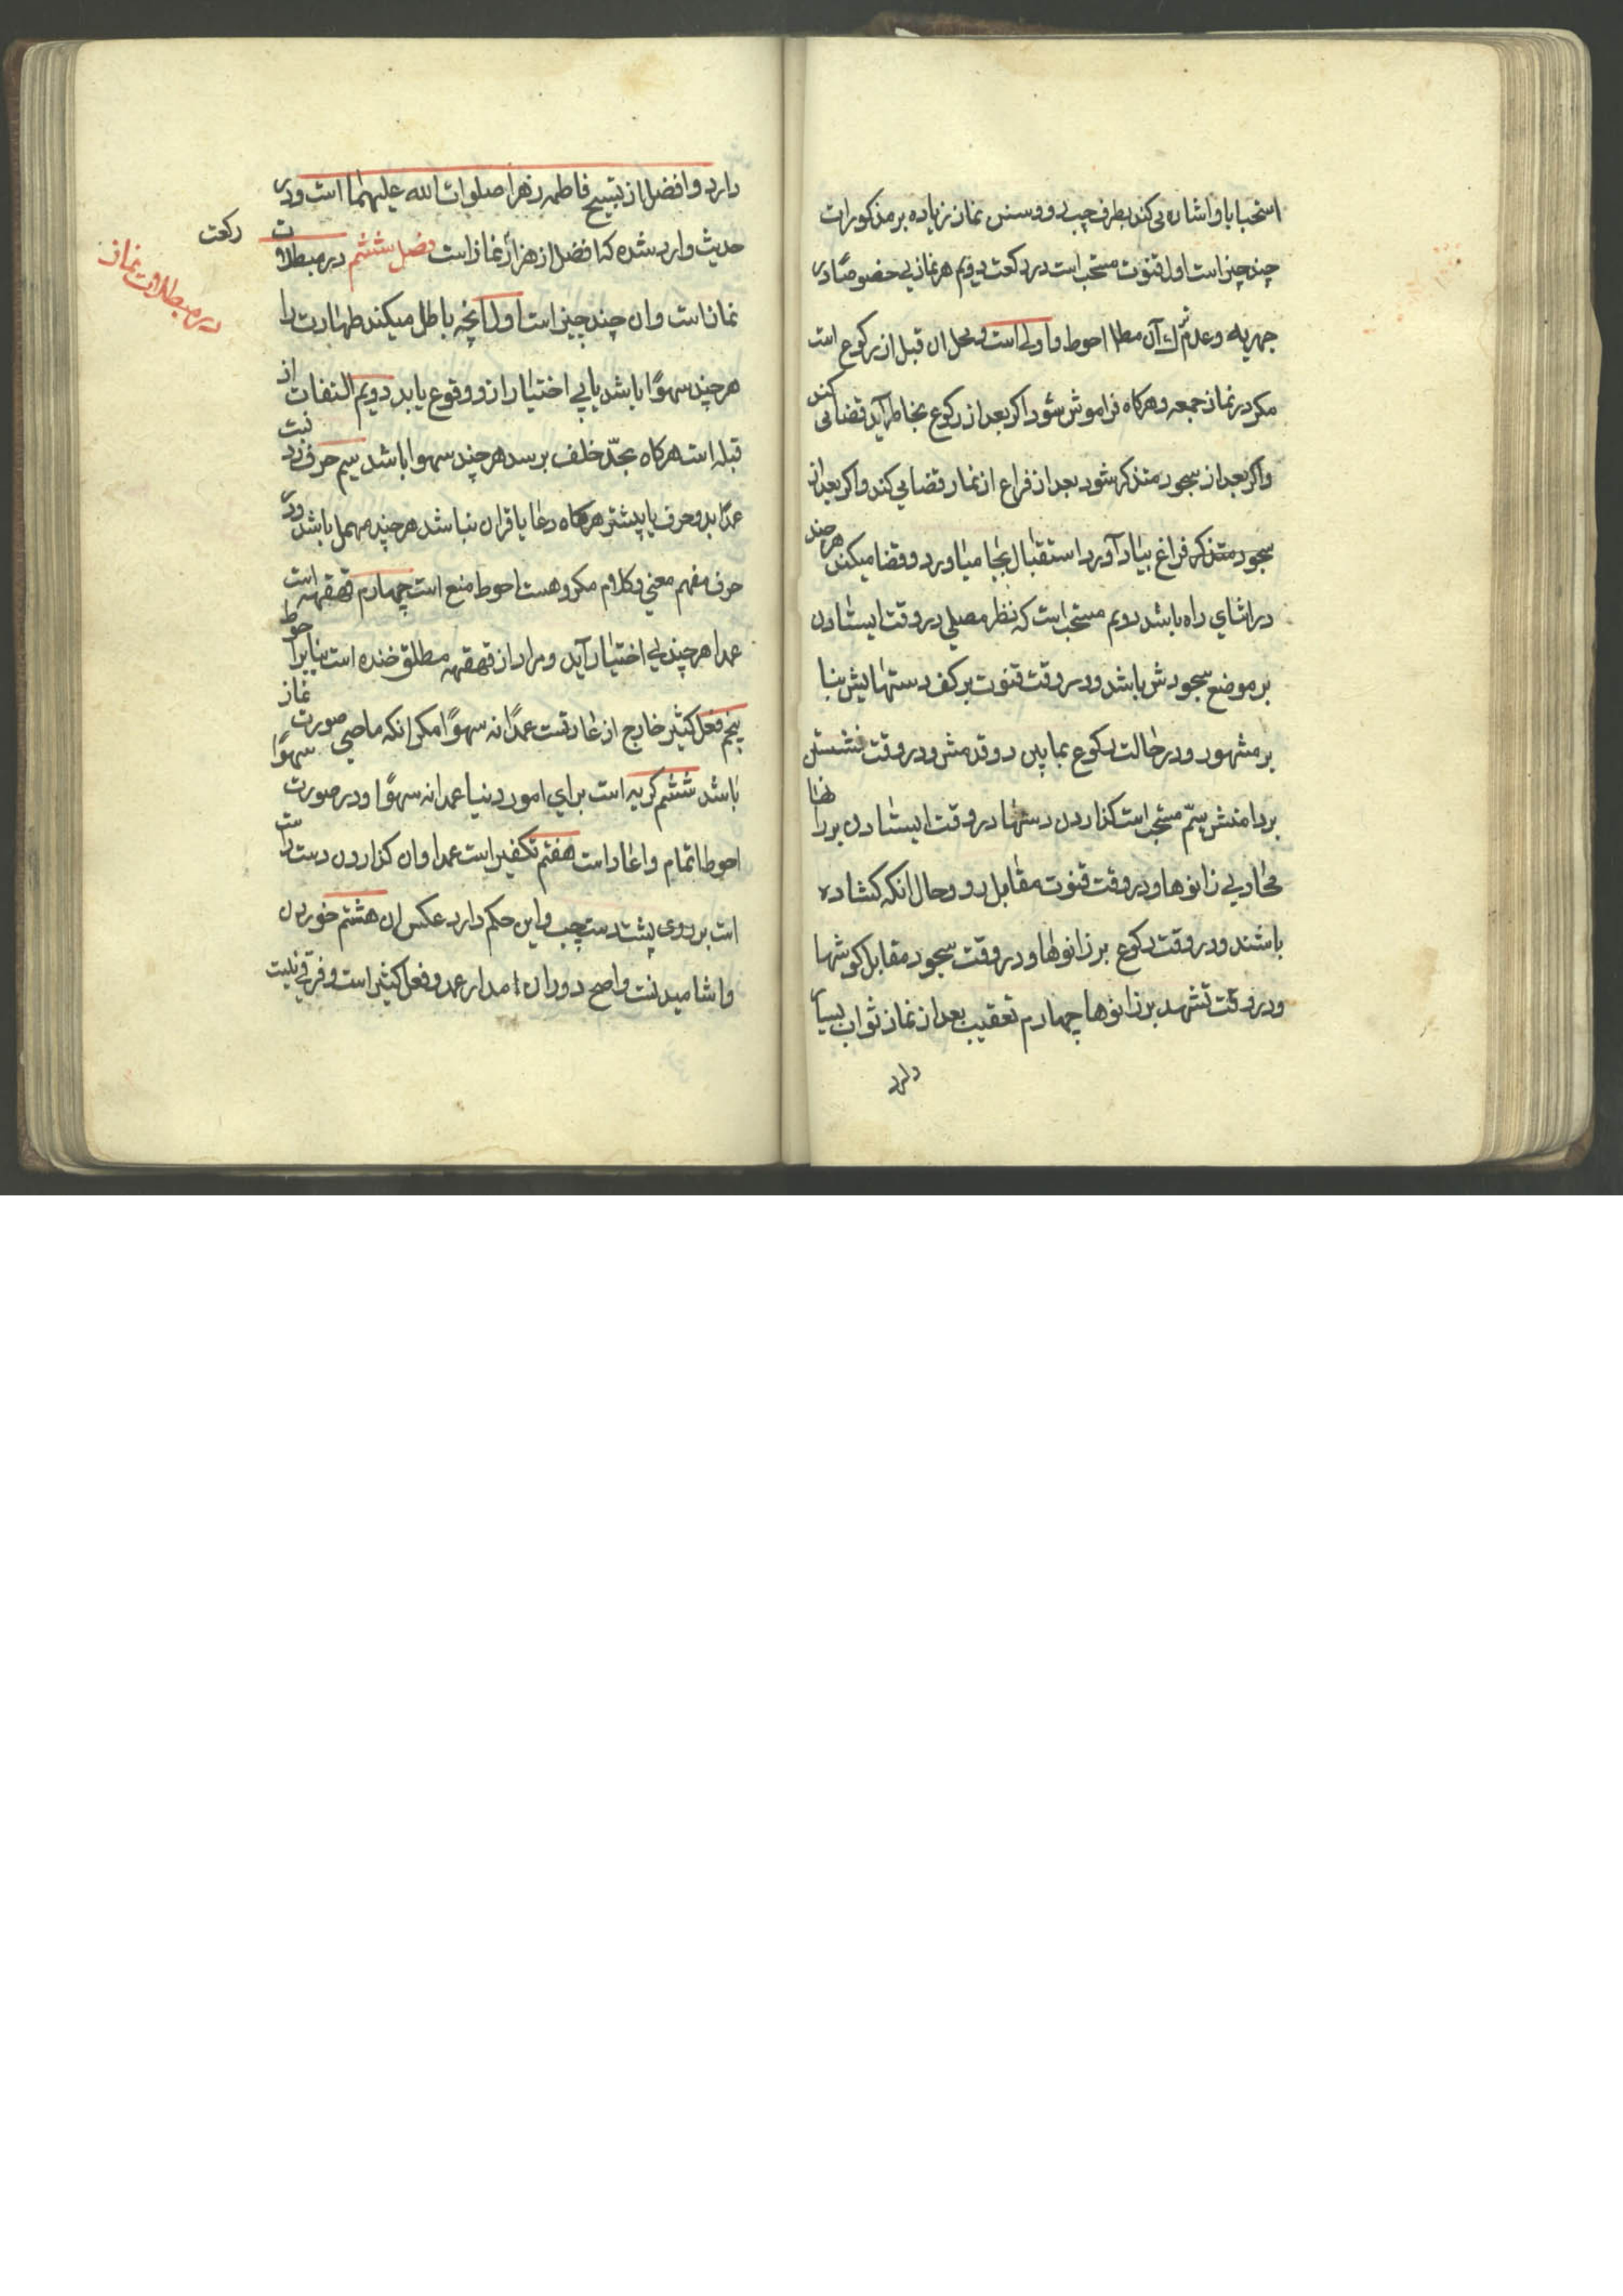 استحبابا و اشاره می کند بطرف چپ رو و سنن نماز زیاده بر مذکورات
چند چیز است اول قنوت مستحب است در رکعت دویم هر نمازی خصوصًا در
جهریه و عدم ترک آن مطلقا احوط و اولی است و محل ان قبل از رکوع است
مکر در نماز جمعه و هرکاه فراموش شود اکر بعد از رکوع بخاطر آید قضا می کند
و اکر بعد از سجود متذکر شود بعد از فراغ از نماز قضا می کند و اکر بعد از
سجود متذکر فراغ بیاد آورد استقبال بجا میاورد و قضا میکند هر چند
در اثنای راه باشد دویم مستحب است که نظر مصلی در وقت ایستادن
بر موضع سجودش باشد و در وقت قنوت بر کف دستهایش بنا
بر مشهور و در حالت رکوع بمابین دو قدمش و در وقت نشستن
بر دامنش سیّم مستحب است کذاردن دستها در وقت ایستادن بر رانها
محاذی زانوها و در وقت قنوت مقابل رو و حال انکه کشاده
باشند و در وقت رکوع بر زانوها و در وقت سجود مقابل کوشها
و در وقت تشهد بر زانوها چهارم تعقیب بعد از نماز ثواب بسیار
دارد
دارد و افضل از تسبیح فاطمه زهرا صلوات الله علیهما است و در
حدیث وارد شده که افضل از هزار نماز است فصل ششم در مبطلات
رکعت
در مبطلات نماز
نماز است و ان چند چیز است اول انچه باطل میکند طهارت را
هر چند سهوًا باشد یا بی اختیار از و وقوع یابد دویم التفات از
قبله است هرکاه بحدّ خلف برسد هر چند سهوا باشد سیم حرف زدنست
عمدًا بدو حرف یا پیشتر هرکاه دعا یا قران نباشد هر چند مهمل باشد و در
حرف مفهم معنی و کلام مکروهست احوط منع است چهارم قهقهه است
عمدا هر چند بی اختیار آید و مراد از قهقهه مطلق خنده است بنابر احوط
پنجم فعل کثیر خارج از عادتست عمدًا نه سهوًا مکر انکه ماحی صورت نماز
باشد ششم کریه است برای امور دنیا عمدا نه سهوًا و در صورت سهوًا
احوط اتمام و اعاده است هفتم تکفیر است عمدا و ان کذاردن دست راست
است بر روی پشت دست چپ و این حکم دارد عکس ان هشتم خوردن
و اشامیدنست و اصح دوران مدار عمد و فعل کثیر است و فرقی نیست